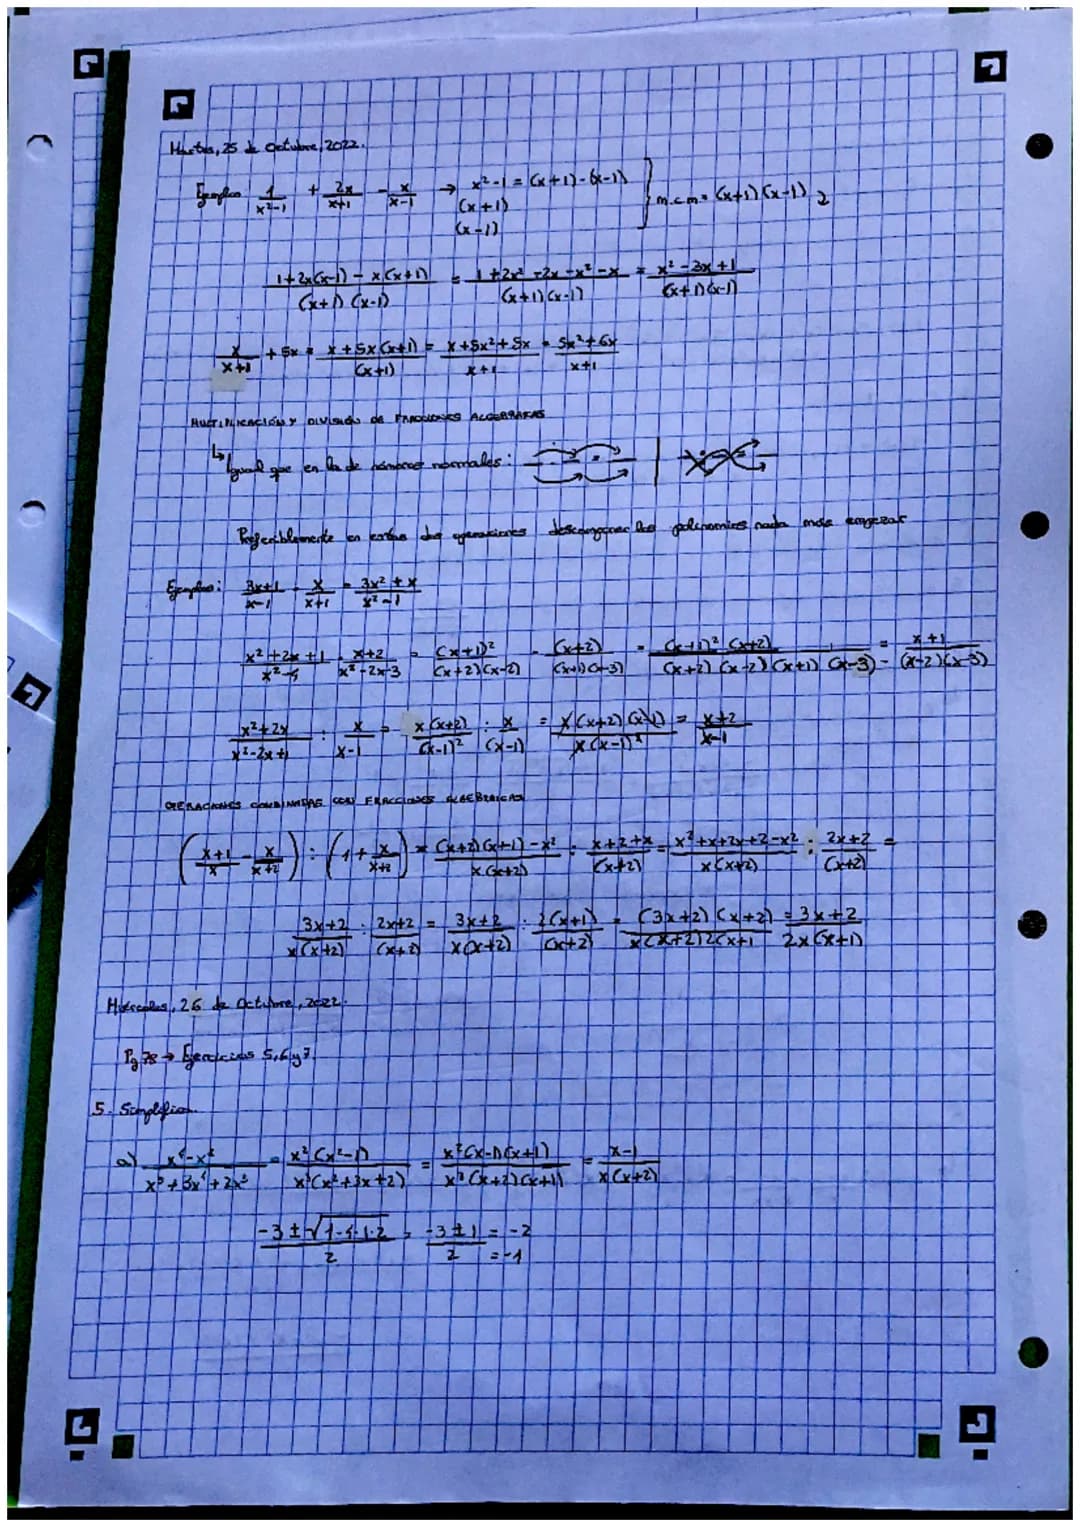 Martes, 25 de Octubre, 2022.
Ejemplos 1/(x²-1) + 2x/(x+1) - x/(x-1) → x²-1 = (x+1)-(x-1) } m.c.m = (x+1)(x-1)
(x+1)
(x-1)
(1+2x(x-1) - x(x+1))/((x+1)(x-1)) = (1+2x²-2x-x²-x)/((x+1)(x-1)) = (x²-3x+1)/((x+1)(x-1))
x/(x+1) + 5x = (x+5x(x+1))/(x+1) = (x+5x²+5x)/(x+1) = (5x²+6x)/(x+1)
MULTIPLICACIÓN Y DIVISIÓN DE FRACCIONES ALGEBRAICAS
↳ Igual que en la de números normales:
Preferiblemente en estas dos operaciones descomponer los polinomios nada más empezar
Ejemplos: (3x+1)/(x-1) · x/(x+1) = (3x²+x)/(x²-1)
(x²+2x+1)/(x²-4) · (x+2)/(x²-2x-3) = (x+1)²/((x+2)(x-2)) · (x+2)/((x+1)(x-3)) = ((x+1)²(x+2))/((x+2)(x-2)(x+1)(x-3)) = (x+1)/((x-2)(x-3))
(x²+2x)/(x²-2x+1) : x/(x-1) = x(x+2)/(x-1)² : x/(x-1) = x(x+2)(x-1)/(x(x-1)²) = (x+2)/(x-1)
OPERACIONES COMBINADAS CON FRACCIONES ALGEBRAICAS
((x+1)/x - x/(x+2)) : (1 + x/(x+2)) = ((x+2)(x+1)-x²)/(x(x+2)) : (x+2+x)/(x+2) = (x²+x+2x+2-x²)/(x(x+2)) : (2x+2)/(x+2) =
(3x+2)/(x(x+2)) : (2x+2)/(x+2) = (3x+2)/(x(x+2)) : 2(x+1)/(x+2) = (3x+2)(x+2)/(x(x+2)2(x+1) = (3x+2)/(2x(x+1))
Miércoles, 26 de Octubre, 2022.
Pg 78 → Ejercicios 5, 6 y 7.
5. Simplifica.
a) (x⁴-x²)/(x⁵+3x⁴+2x³) = x²(x²-1)/(x³(x²+3x+2)) = x²(x-1)(x+1)/(x³(x+2)(x+1)) = (x-1)/(x(x+2))
(-3±√(1-4·1·2))/2 = (-3±1)/2 = -2
= -1